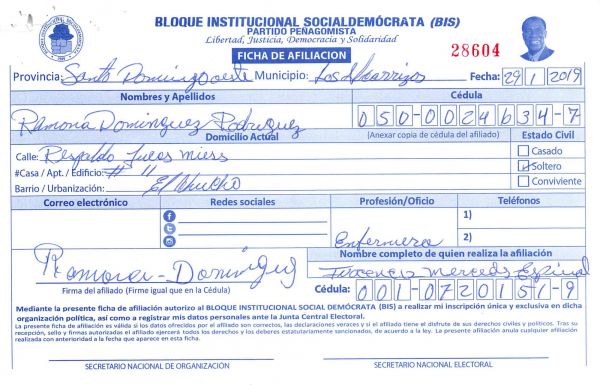 BLOQUE INSTITUCIONAL SOCIALDEMÓCRATA (BIS)
PARTIDO PEÑAGOMISTA
Libertad, Justicia, Democracia y Solidaridad
FICHA DE AFILIACION
28604
Provincia: Santo Domingo oeste Municipio: Los Alcarrizos Fecha: 29/1/2019
Nombres y Apellidos Cédula
Ramona Dominguez Rodriguez 050-0024634-7
Domicilio Actual (Anexar copia de cédula del afiliado) Estado Civil
Calle: Respaldo Casado
#Casa / Apt. / Edificio: # 11 Soltero
Barrio / Urbanización: Conviviente
Correo electrónico Redes sociales Profesión/Oficio Teléfonos
1)
Enfermera 2)
Nombre completo de quien realiza la afiliación
Ramona Domingues Mercedes Espinal
Firma del afiliado (Firme igual que en la Cédula) Cédula: 001-0720151-9
Mediante la presente ficha de afiliación autorizo al BLOQUE INSTITUCIONAL SOCIAL DEMÓCRATA (BIS) a realizar mi inscripción única y exclusiva en dicha
organización política, así como a registrar mis datos personales ante la Junta Central Electoral.
La presente ficha de afiliación es válida si los datos ofrecidos por el afiliado son correctos, las declaraciones veraces y si el afiliado tiene el disfrute de sus derechos civiles y políticos. Tras su
recepción, sello y firmas autorizadas el afiliado ejercerá todos los derechos y los deberes estatutariamente sancionados, de acuerdo a la ley. La presente afiliación anula cualquier afiliación
realizada con anterioridad a la fecha que aparece en esta ficha.
SECRETARIO NACIONAL DE ORGANIZACIÓN SECRETARIO NACIONAL ELECTORAL